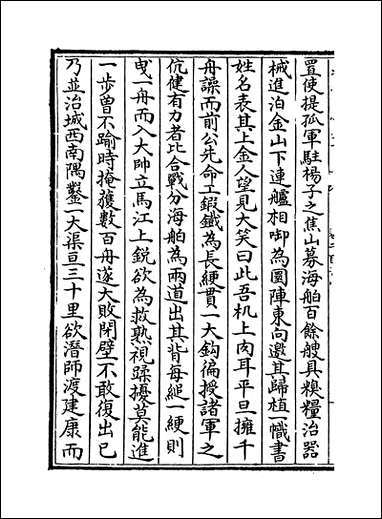 置使提孤軍駐楊子之焦山募海舶百餘艘具糗糧治器
械進泊金山下連艫相啣為圜陣東向邀其歸植一幟書
姓名表其上金人望見大笑曰此吾机上肉耳平旦擁千
舟譟而前公先命工鍜鐵為長綆貫一大鈎徧授諸軍之
伉健有力者比合戰分海舶為兩道出其背每縋一綆則
曳一舟而入大帥立馬江上銳欲為救熟視蹂擾莫能進
一步曾不踰時掩獲數百舟遂大敗閉壁不敢復出已
乃並治城西南隅鑿一大渠亘三十里欲潛師渡建康而